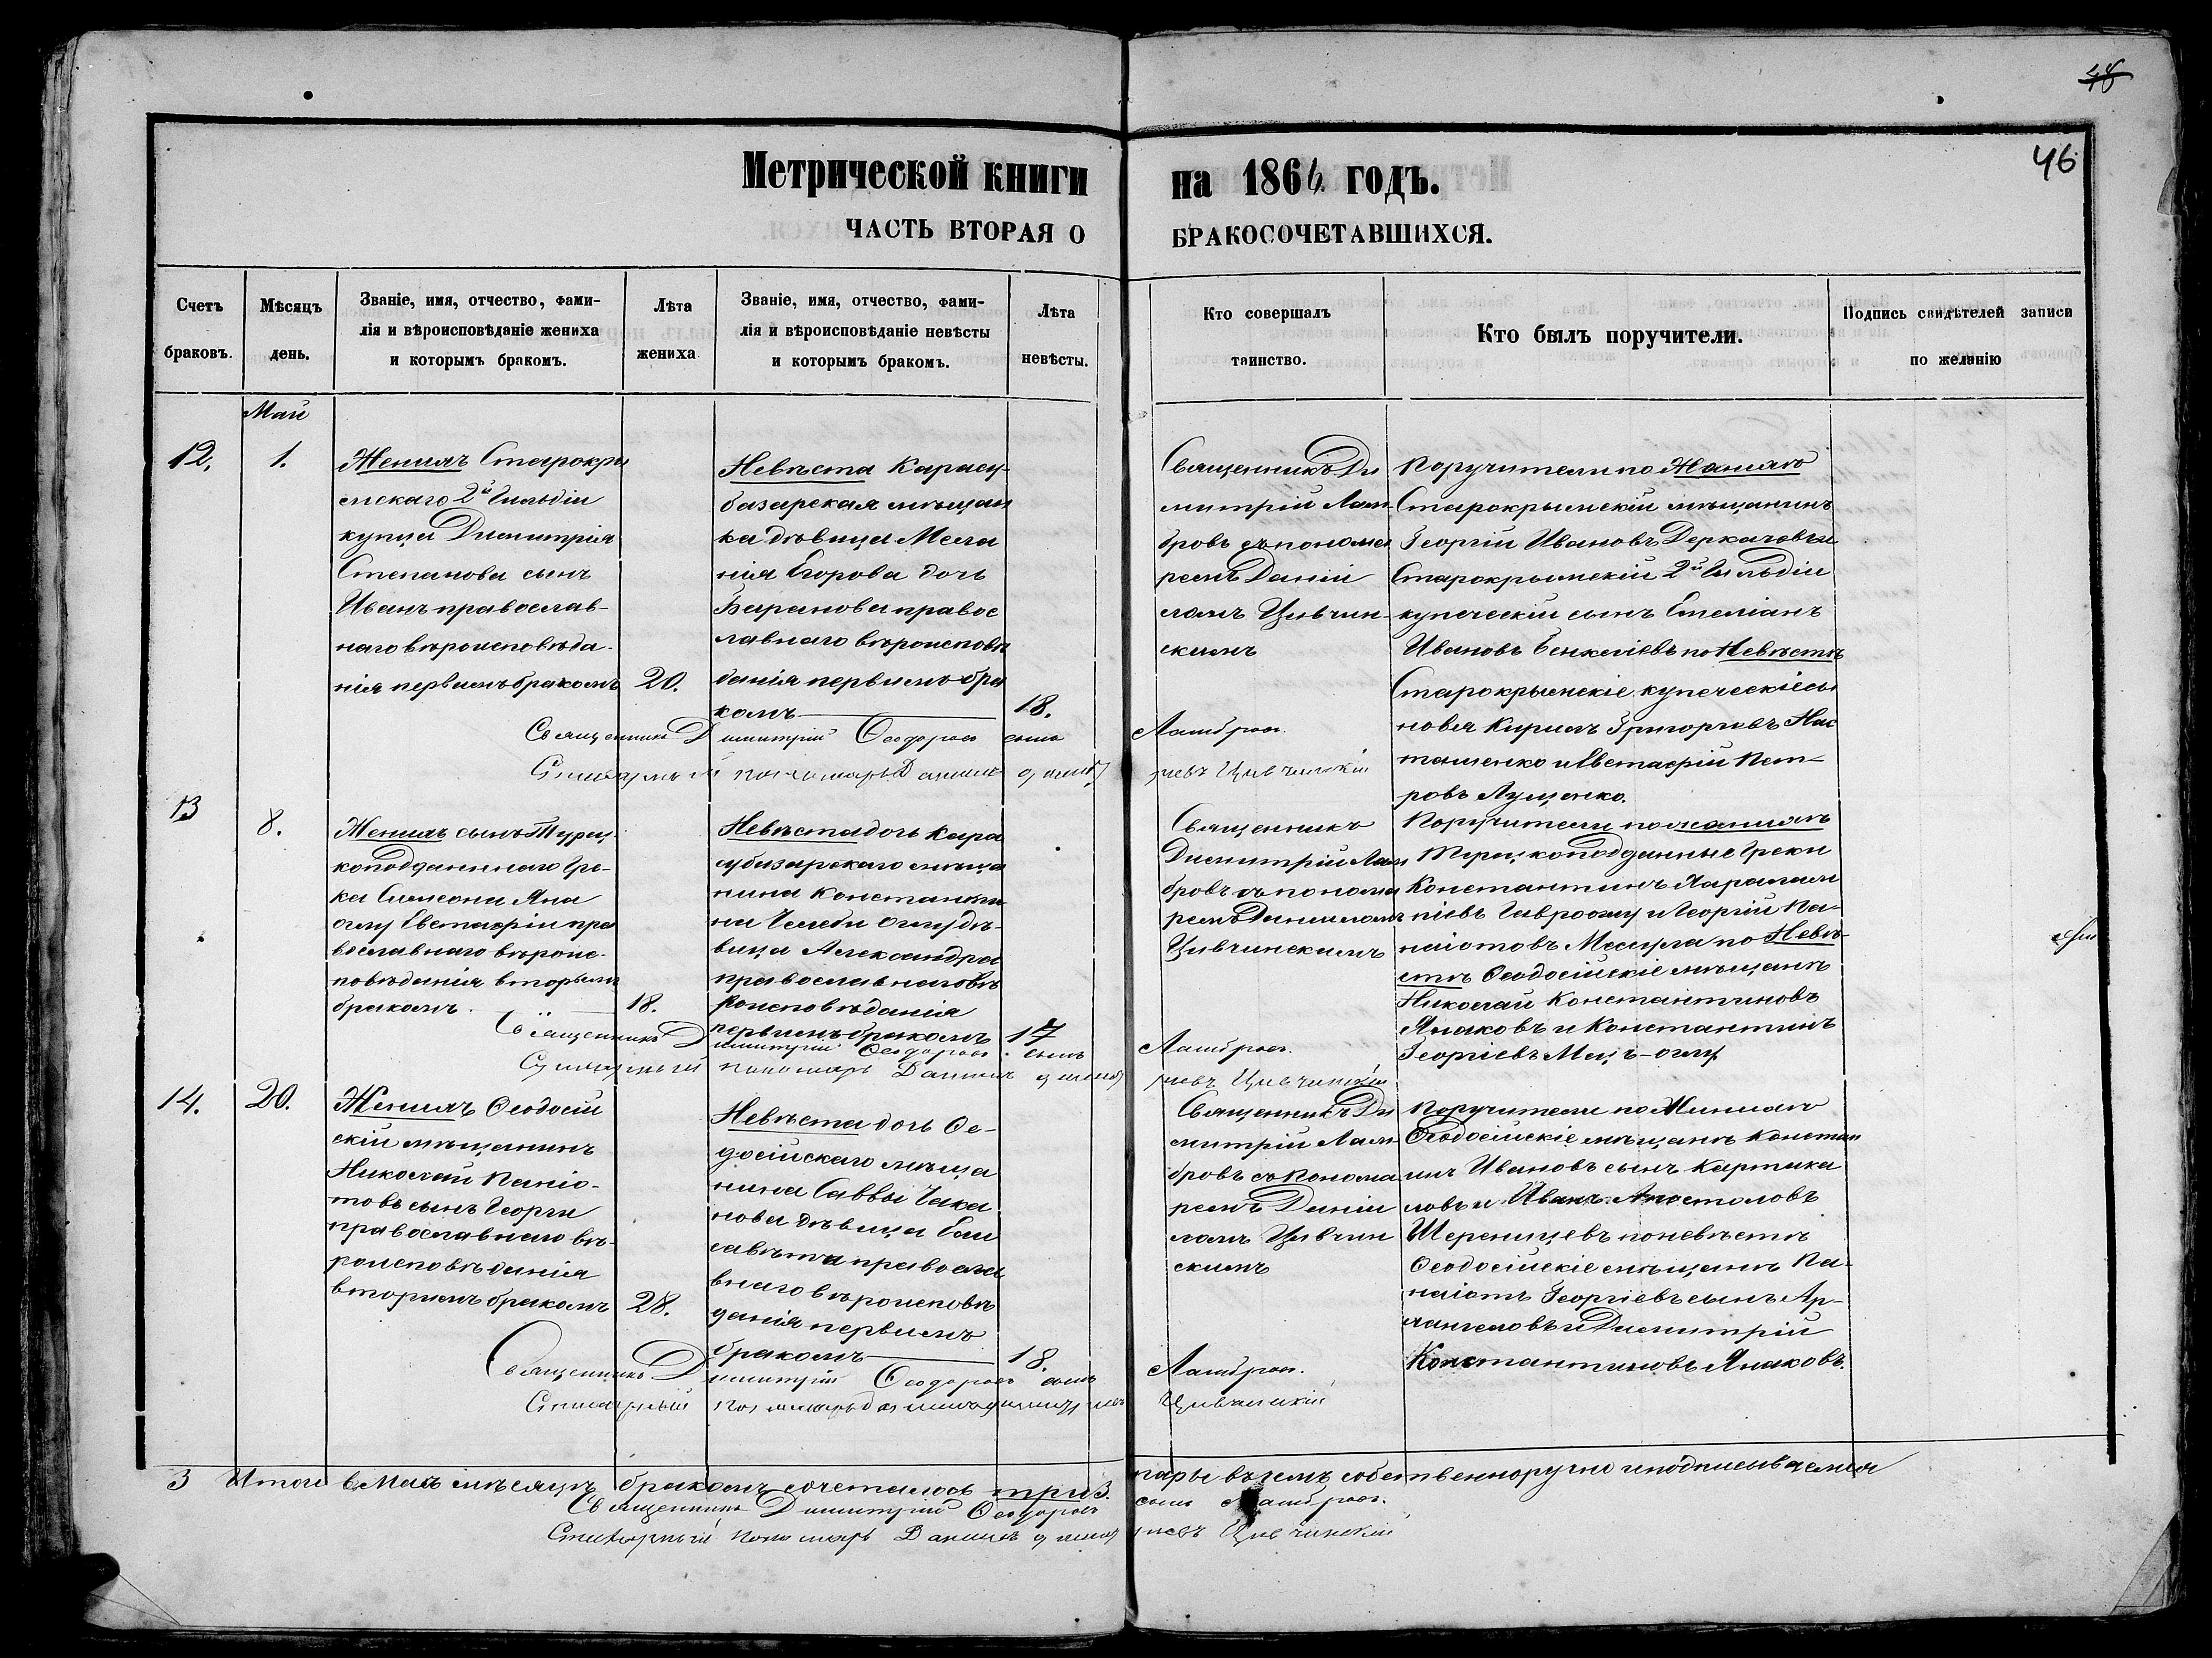 48
46
Метрической книги на 1864 годъ.
ЧАСТЬ ВТОРАЯ О БРАКОСОЧЕТАВШИХСЯ.
Счетъ браковъ.
Мѣсяцъ день.
Званіе, имя, отчество, фами-
лія и вѣроисповѣданіе жениха
и которымъ бракомъ.
Лѣта жениха
Званіе, имя, отчество, фами-
лія и вѣроисповѣданіе невѣсты
и которымъ бракомъ.
Лѣта невѣсты.
Кто совершалъ
таинство.
Кто былъ поручители.
Подпись свидѣтелей записи
по желанію
Май
12.
1.
Женихъ Старокры
мскаго 2й Гильдіи
купца Димитрія
Степанова сынъ
Иванъ православ-
наго вѣроисповѣда-
нія первымъ бракомъ
20.
Невѣста Карасу-
базарская мѣщан
ка дѣвица Мела
нія Егорова дочь
Баранова правос
лавнаго вѣроисповѣ
данія первымъ бра
комъ
18.
Священникъ Ди
митрій Лам-
бровъ съ понома
ремъ Даніи
ломъ Цивчин-
скимъ
Поручители по Женихѣ
Старокрымскій мѣщанинъ
Георгій Ивановъ Деркачевъ и
Старокрымскій 2й Гильдіи
купеческій сынъ Емеліанъ
Ивановъ по Невѣстѣ
Старокрымскіе купеческіе сы
новья Кирилъ Григорьевъ Нас
ташенко и Евстафій Пет-
ровъ Лущенко.
Священникъ Димитрій Ѳеодоровъ сынъ Ламбровъ.
пономарь Даніилъ Цивчинскій
13
8.
Женихъ сынъ Турец-
коподданнаго Гре-
ка Симеона Яна
оглу Евстафій пра
вославнаго вѣроис-
повѣданія вторымъ
бракомъ
18.
Невѣста дочь Кара
субазарскаго мѣща
нина Константи
на Челеби оглу дѣ-
вица Александра
православнаго вѣ
роисповѣданія
первымъ бракомъ
17
Священникъ
Димитрій Лам
бровъ съ понома
ремъ Данииломъ
Цивчинскимъ
Поручители по женихѣ
Турецкоподданные Греки
Константинъ Харалам
піевъ Гавроглу и Георгій Па-
наіотовъ по Невѣ-
стѣ Ѳеодосійскіе мѣщанѣ
Николай Константиновъ
Янаковъ и Константинъ
Георгіевъ
Священникъ Димитрій Ѳеодоровъ сынъ Ламбровъ.
пономарь Даніилъ Цивчинскій
14.
20.
Женихъ Ѳеодосій
скій мѣщанинъ
Николай Паніо-
товъ сынъ Георги
православнаго вѣ-
роисповѣданія
вторымъ бракомъ
28.
Невѣста дочь Ѳе-
досійскаго мѣща
нина Саввы Чака
нова дѣвица Ели
савѣта правосла
внаго вѣроисповѣ
данія первымъ
бракомъ
18.
Священникъ Ди
митрій Лам-
бровъ съ Понома
ремъ Даніи
ломъ Цивчин
скимъ
Поручители по Женихѣ
Ѳеодосійскіе мѣщанѣ Констан
инъ Ивановъ сынъ Картика
ловъ и Иванъ Апостоловъ
Шереницевъ по невѣстѣ
Ѳеодосійскіе мѣщанѣ Па-
наіотъ Георгіевъ сынъ Ар-
хангеловъ и Димитрій
Константиновъ Янаковъ.
Священникъ Димитрій Ѳеодоровъ сынъ Ламбровъ.
пономарь Даніилъ Цивчинскій
3 Итого въ Маѣ мѣсяцѣ бракомъ сочеталось три 3. пары въ чемъ собственноручно и подписываемся
Священникъ Димитрій Ѳеодоровъ сынъ Ламбровъ.
пономарь Даніилъ Цивчинскій